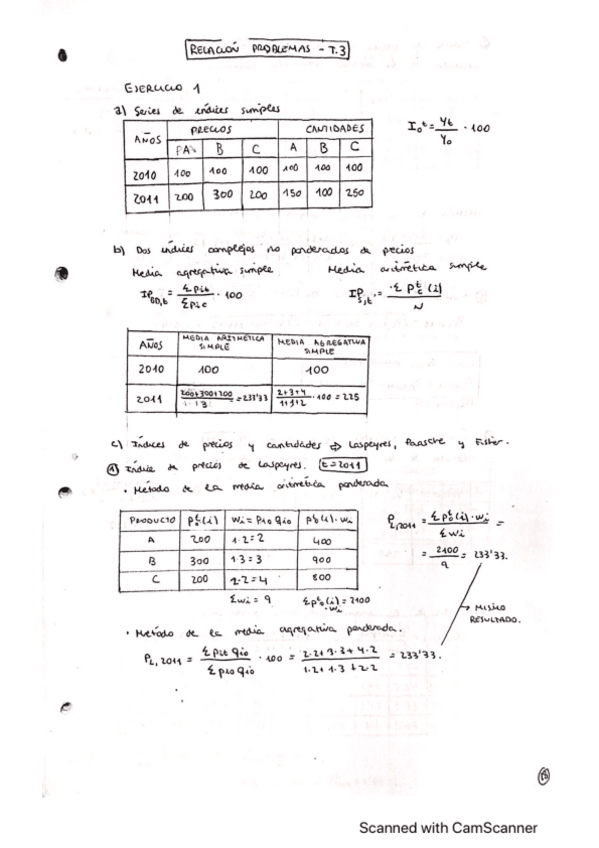 RELACIÓN PROBLEMAS - T.3
EJERCICIO 1
a) Series de índices simples
AÑOS PRECIOS CANTIDADES
PA B C A B C
2010 100 100 100 100 100 100
2011 200 300 200 150 100 250
I₀ᵗ = Yt / Y₀ · 100
b) Dos índices complejos no ponderados de precios
Media agregativa simple Media aritmética simple
IP BD,t = Σ Pit / Σ Pio · 100
IP S,t = Σ P₀ᵗ(i) / N
AÑOS MEDIA ARITMÉTICA SIMPLE MEDIA AGREGATIVA SIMPLE
2010 100 100
2011 200+300+200 / 3 = 233'33 2+3+4 / 1+1+2 · 100 = 225
c) Índices de precios y cantidades ⇒ Laspeyres, Paasche y Fisher.
① Índice de precios de Laspeyres. t=2011
· Método de la media aritmética ponderada
PRODUCTO P₀ᵗ(i) Wi = Pio Qio P₀ᵗ(i)·Wi
A 200 1·2=2 400
B 300 1·3=3 900
C 200 2·2=4 800
Σwi = 9 Σp₀ᵗ(i)·wi = 2100
PL,2011 = Σ P₀ᵗ(i)·wi / Σ wi =
= 2100 / 9 = 233'33.
→ MISMO
RESULTADO.
· Método de la media agregativa ponderada.
PL,2011 = Σ Pit qio / Σ Pio qio · 100 = 2·2+3·3+4·2 / 1·2+1·3+2·2 = 233'33.
Scanned with CamScanner